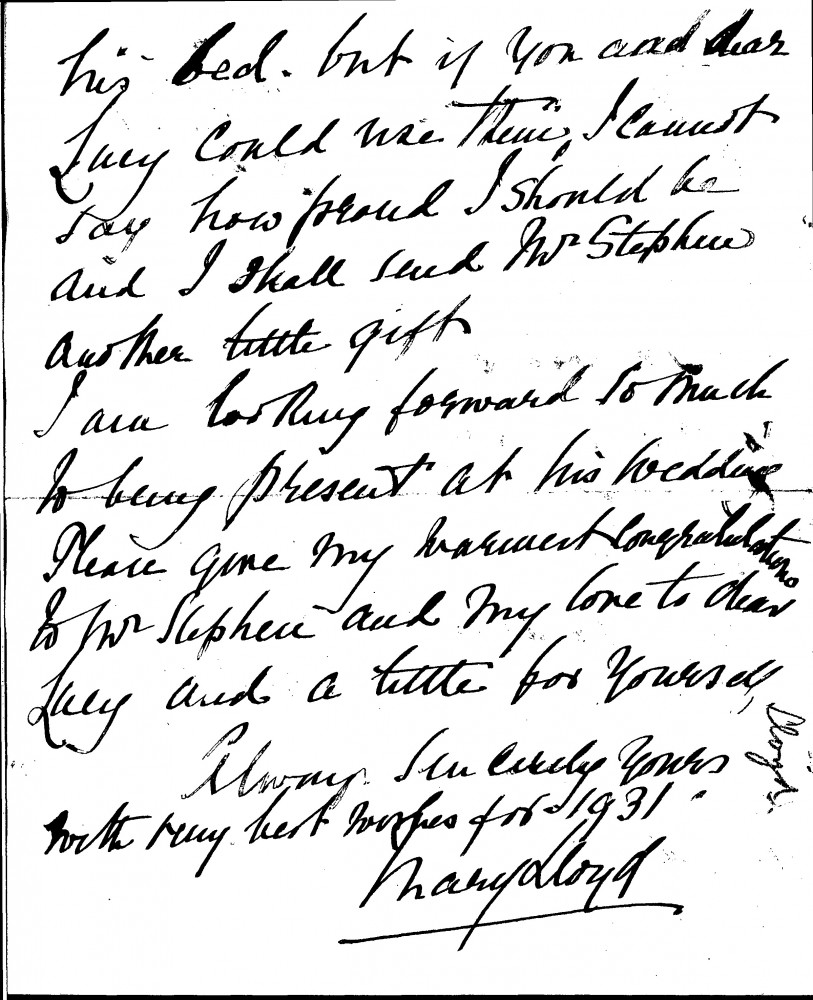 his bed. but if you and dear
Lucy could use them, I cannot
say how proud I should be
and I shall send Mr Stephen
another little gift
I am looking forward so much
to being present at his wedding
Please give my warmest congratulations
to Mr Stephen and my love to dear
Lucy and a little for yourself,
Always sincerely yours
with very best wishes for 1931
Mary Lloyd
Lloyd.